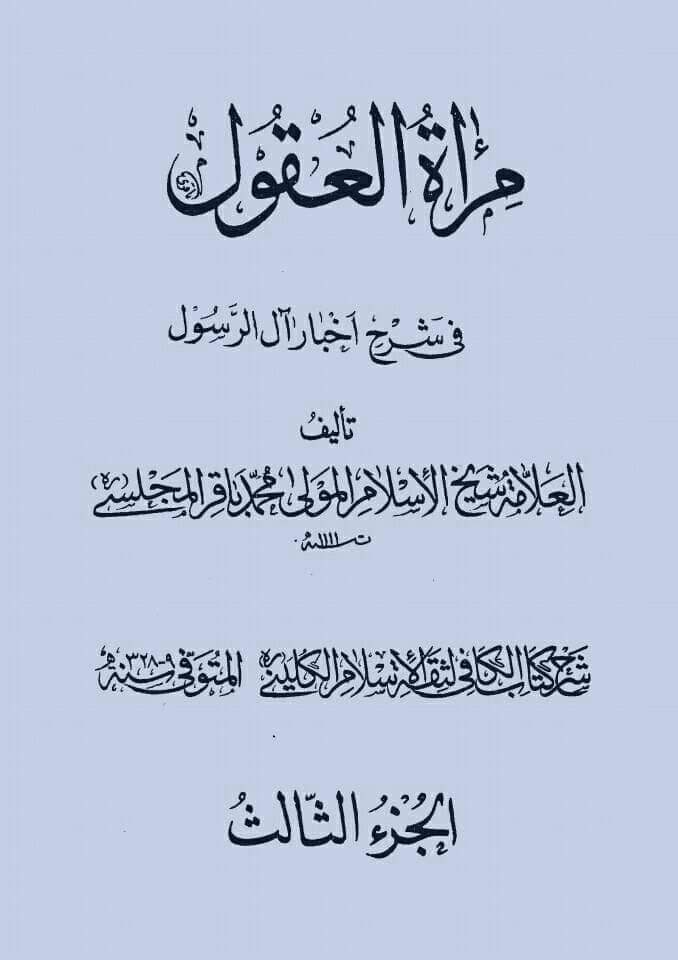 مِرْآةُ الْعُقُوْلِ
فِي شَرْحِ أَخْبَارِ آلِ الرَّسُوْل
تأليفُ
العَلّامَة شيخ الإسلام المَولى محمّد باقر المَجلسي (ره)
ت ١١١١ هـ
شرح كتاب الكافي لثقة الإسلام الكليني ره المتوفى سنة ٩-٣٢٨ هـ
الجُزءُ الثّالثُ